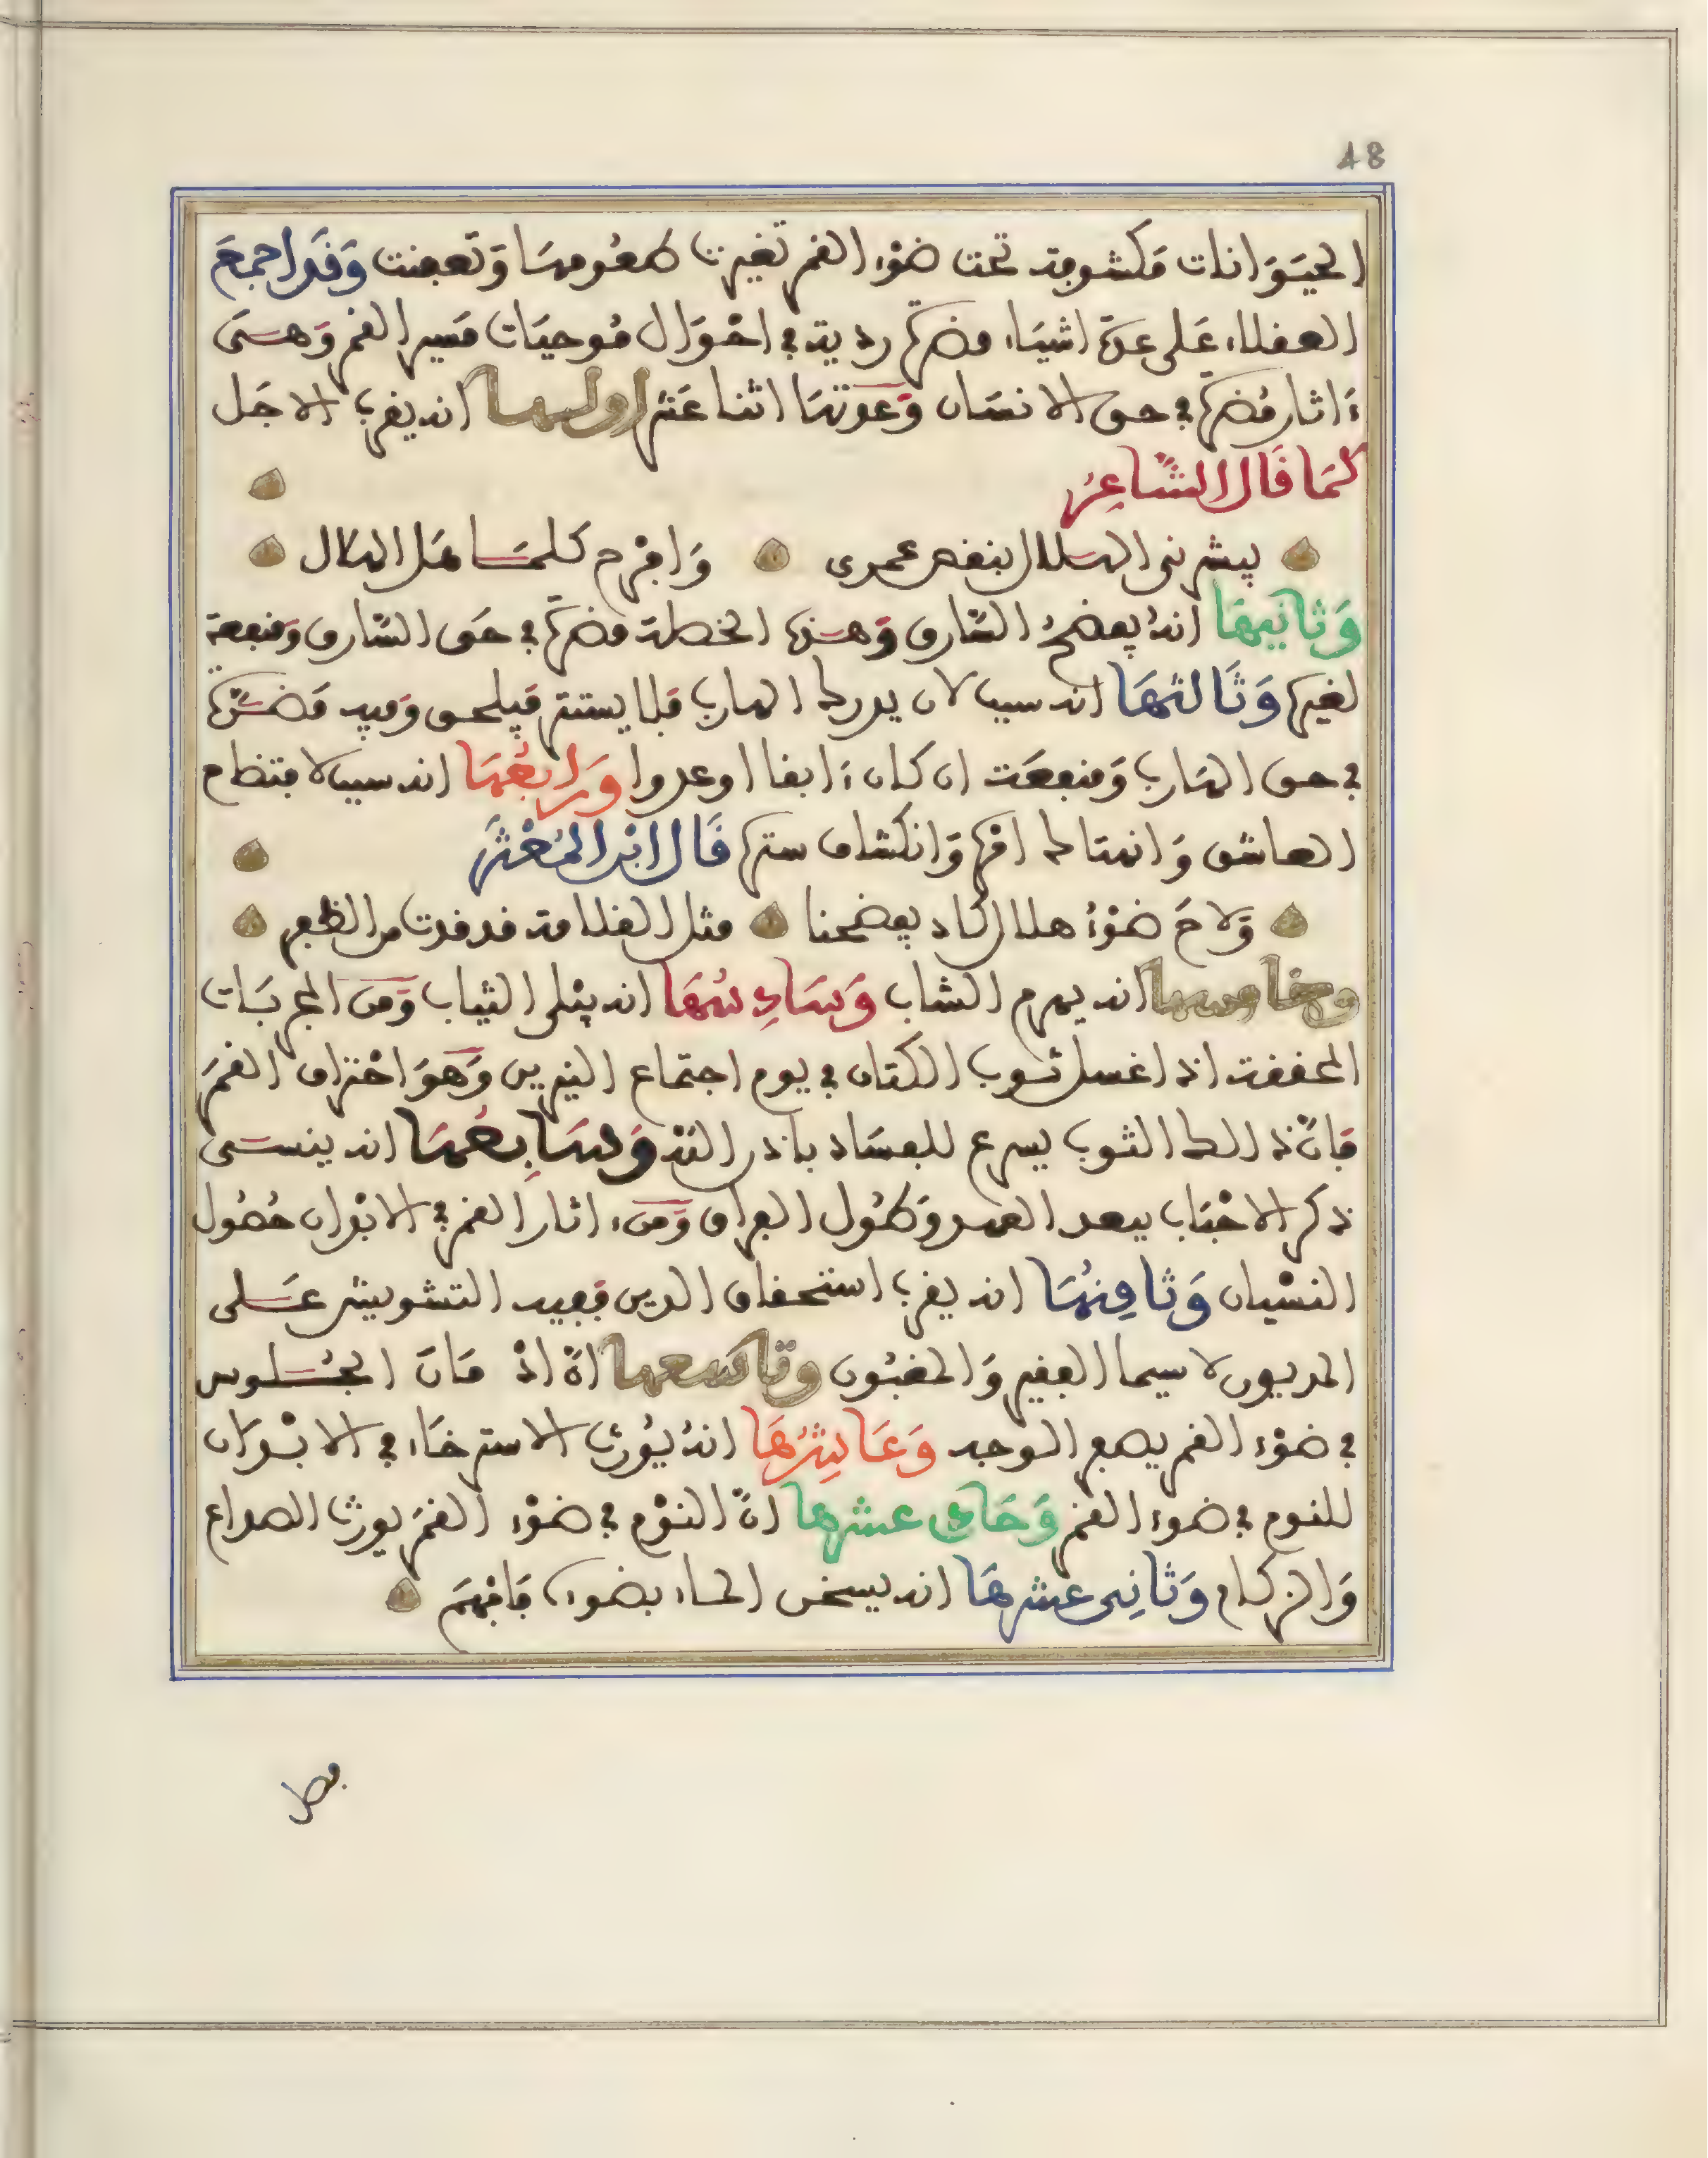 48
الحيَوَانات مَكشوفة تحت ضوْء القمر تغيرت طعُومهَا وَتعفنت وَقَد اجمعَ
العقلاء عَلى عدّة اشيَاء مضرّة رديّة في احْوَال مُوحيَات مَسير القمر وَهسَى
ءَاثار مُضرّة في حق الانسَان وَعدتهَا اثنا عَشر اولهسا انه يقرب الاجَل
كمَا قَال الشّاعِرُ
يبشرني الهسلال بنقص عمري وَافْرح كلمسَا هَل الهلال
وَثانيهَا انهُ يفضحُ السّارق وَهسَذه الخصلة مضرّة في حَق السّارق وَمنفعة
لغيره وَثَالثهَا انه سببا لان يدرك الهارب فلا يستتر فيلحق وَفيه مَضسَرّة
في حق الهَارب وَمنفعَة ان كان ءَابقا او عدوا وَرابعُهَا انه سببا لافتظاح
العاشق وَانهتاك امْره وَانكشاف ستره قَال ابْن المُعْثَز
وَلاحَ ضوْءُ هلال كاد يفضحنا مثل القلامة قد قدت من الظفر
وخامسها انه يهرم الشاب وَسَادِسُهَا انه يبْلي الثياب وَمن المجربَات
المحققة اذا غسل ثوب الكتان في يوم اجتماع النيرين وَهوَ احْتراق القمَر
فَانّ ذالك الثوب يسرع للفسَاد باذن اللهْ وَسَابِعُهَا انه ينسسَى
ذكر الاحْبَاب ببعد العهد وَطُول الفراق وَمن ءاثار القمر في الابْدان حُصُول
النسْيان وَثامِنهُا انه يقرب استحقاق الدين فيفيد التشويش عَسلى
المديون لاسيما الفقير وَالمغبُون وتاسعها انّ اذْ مَانَ الجُسلوس
في ضوْء القمر يصفر الوجه وَعَاشِرُهَا انهُ يُورث الاسترخَاء في الابْدَان
للنوم في ضوء القمر وَحَادي عشرها انّ النوْم في ضوْء القمرَ يورث الصداع
وَالزكام وَثانِي عشرهَا انه يسخن الماء بضوءه فَافْهَم
فصل